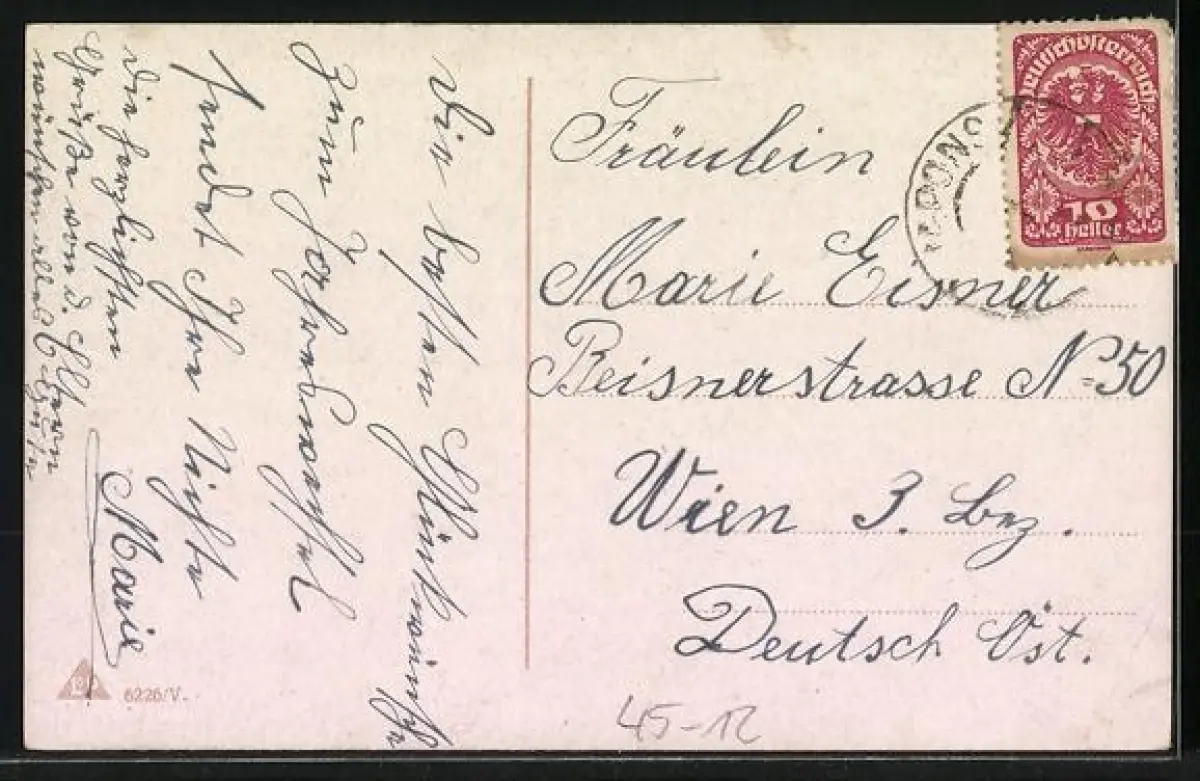 Die besten Glückwünsche
zum Jahreswechsel
sendet Ihre Nichte
Marie
die herzlichsten
Grüße von d. Eltern
wünschen alles Gute
Fräulein
Marie Eisner
Beisnerstrasse № 50
Wien 3. Bez.
Deutsch Öst.
Deutschösterreich
10
heller
6226/V.
45-12